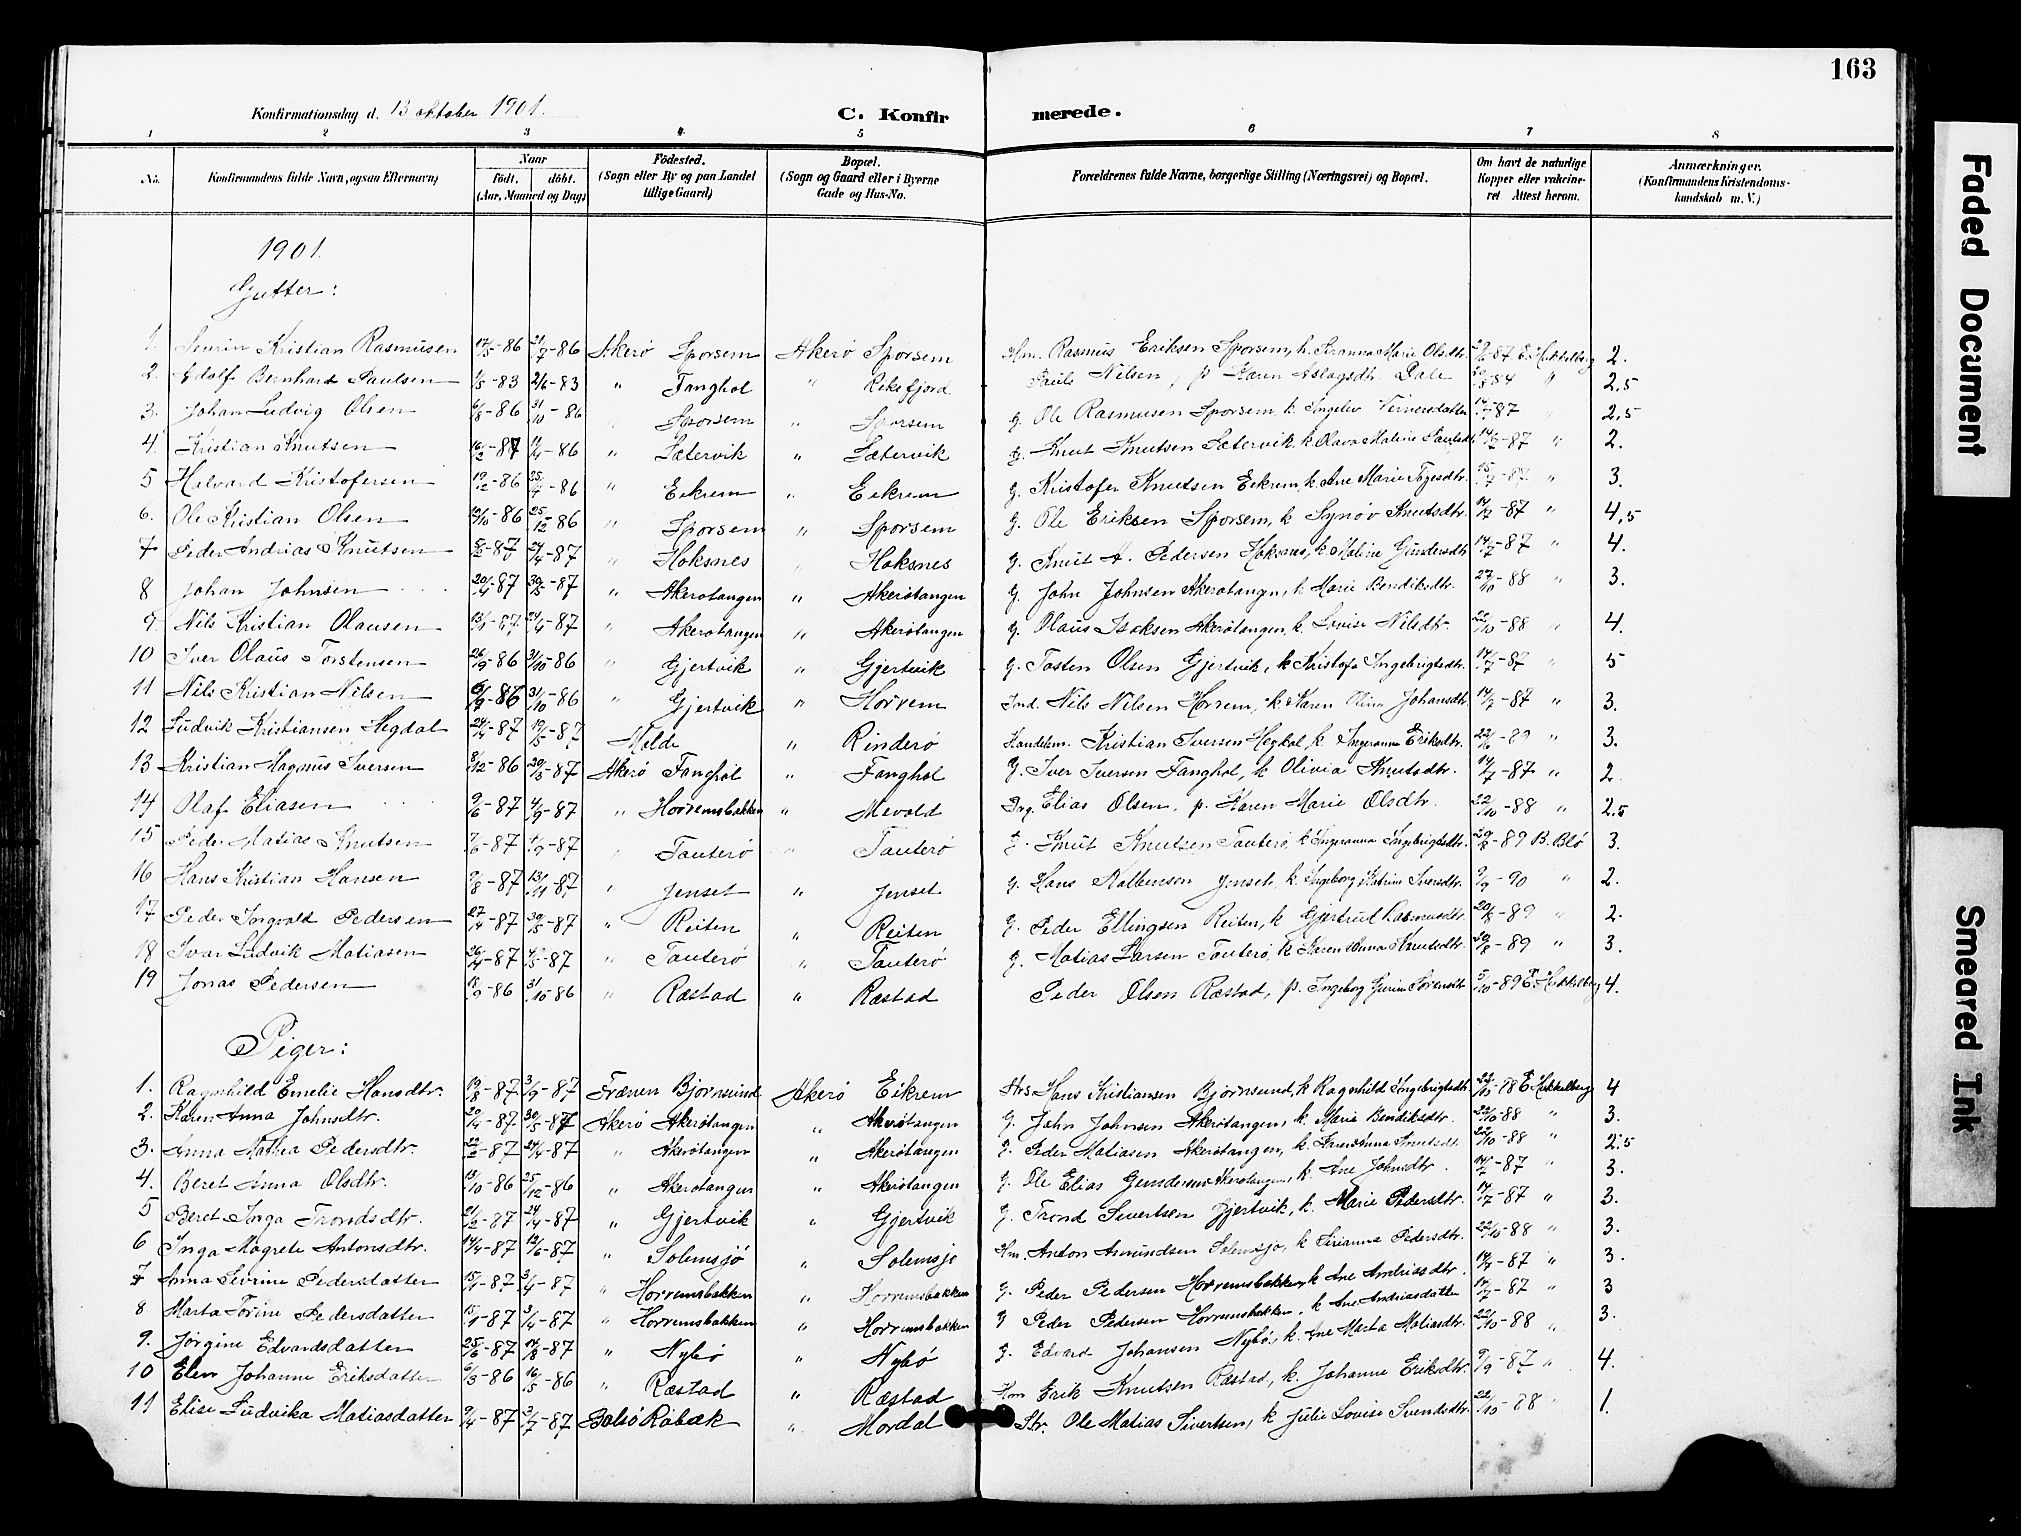 163
Konfirmationsdag d. 13 oktober 1901.
C. Konfirmerede.
1 2 3 4 5 6 7 8
No. Konfirmandens fulde Navn, ogsaa Efternavn) Naar født. døbt. (Aar, Maaned og Dag) Fødested. (Sogn eller By og paa Landet tillige Gaard) Bopæl. (Sogn og Gaard eller i Byerne Gade og Hus-No. Forældrenes fulde Navne, borgerlige Stilling (Næringsvei) og Bopæl. Om havt de naturlige Kopper eller vakcineret Attest herom. Anmærkninger. (Konfirmandens Kristendomskundskab m. V.)
1901.
Gutter:
1. Severin Kristian Rasmusen 17/5-86 21/7-86 Akerø Sporsem Akerø Sporsem Rasmus Eriksen Sporsem, Marie Olsdtr. -87 2.
2. Adolf Bernhard Paulsen 1/5-83 2/6-83 " Fanghol " Reksfjord Nilsen, p Karen Aslagsdtr. Dale -84 " 2.5
3. Johan Ludvig Olsen 6/8-86 31/10-86 " Sporsem " Sporsem g. Ole Rasmusen Sporsem, k. -87 " 2,5
4. Kristian Knutsen 16/2-87 11/4-86 " Sætervik " Sætervik g. Knut Knutsen Sætervik k. Olava Malene 14/7-87 " 2.
5 Halvard Kristofersen 19/2-86 25/4-86 " Eikrem " Eikrem g. Kristofer Knutsen Eikrem, k. Ane Marie 15/7-87 " 3.
6. Ole Kristian Olsen 19/10-86 25/12-86 " Sporsem " Sporsem g. Ole Eriksen Sporsem, k Synøv Knutsdtr. 14/7-87 " 4,5
7 Peder Andrias Knutsen -87 24/4-87 " Hoksnes " Hoksnes g. Knut A. Pedersen Hoksnes, k Maline Gundersdtr 14/7-87 " 4.
8 Johan Johnsen 20/4-87 30/5-87 " Akerøtangen " Akerøtangen g. John Johnsen Akerøtangen, k Marie Bendiksdtr. 27/10-88 " 3.
9. Nils Kristian Olausen 13/1-87 24/4-87 " Akerøtangen " Akerøtangen g. Olaus Isaksen Akerøtangen, k. Lovise Nilsdtr. 22/10-88 " 4.
10 Iver Olaus Torstensen 26/9-86 31/10-86 " Gjertvik " Gjertvik g. Tosten Olsen Gjertvik, k Kristofa Ingebrigtsdtr. 14/7-87 " 5
11 Nils Kristian Nilsen 6/9-86 31/10-86 " Gjertvik " Horrem Ind. Nils Nilsen Horrem, k. Karen Johansdtr. 14/7-87 " 3.
12 Ludvik Kristiansen Hegdal 24/4-87 19/5-87 Molde " Rinderø Handelsm. Kristian Iversen k Ingeranna Eriksdtr. -89 " 3.
13 Kristian Magnus Iversen 8/12-86 20/3-87 Akerø Fanghol " Fanghol g. Iver Iversen Fanghol, k Olivia Knutsdtr. 14/7-87 " 2
14 Olaf Eliasen 9/6-87 4/9-87 " Horremsbakken " Mevold Elias Olsen, p. Karen Marie Olsdtr. 22/10-88 " 2.5
15 Peder Matias Knutsen 7/6-87 4/9-87 " Tauterø " Tauterø g. Knut Knutsen Tauterø, k Ingeranna Ingebrigtsdtr. 20/8-89 B. Blø 3.
16 Hans Kristian Hansen 9/8-87 13/11-87 " Jenset " Jenset g. Hans Jenset, k. Ingeborg Katrine Iversdtr. 9/9-90 " 2.
17 Peder Ingvald Pedersen 27/4-87 30/5-87 " Reiten " Reiten g. Peder Ellingsen Reiten, k Gjertrud Rasmusdtr. 20/8-89 " 2.
18 Ivar Ludvik Matiasen 26/4-87 -87 " Tauterø " Tauterø g. Matias Larsen Tauterø, k Karen Anna Knutsdtr. 20/8-89 " 3.
19 Jonas Pedersen 18/9-86 31/10-86 " Ræstad " Ræstad Peder Olsen Ræstad, p. Ingeborg Gurine 5/10-89 4.
Piger:
1. Ragnhild Emelie Hansdtr. 19/8-87 3/9-87 Frænen Bjørnsund Akerø Eikrem Hans Kristiansen Bjørnsund, k Ragnhild Ingebrigtsdtr 22/10-88 4
2. Karen Anna Johnsdtr. 20/4-87 30/5-87 Akerø Akerøtangen " Akerøtangen g. John Johnsen Akerøtangen, k. Marie Bendiksdtr. 22/10-88 " 3.
3. Anna Matea Pedersdtr. 22/2-87 24/4-87 " Akerøtangen " Akerøtangen g. Peder Matiasen Akerøtangen, k. Karen Anna Knutsdtr. 22/10-88 " 2.5
4. Beret Anna Olsdtr. 13/10-86 25/12-86 " Akerøtangen " Akerøtangen g. Ole Elias Gundersen Akerøtangen, k. Ane Johnsdtr. 14/7-87 " 3.
5 Beret Inga Trondsdtr. 21/2-87 24/4-87 " Gjertvik " Gjertvik g. Trond Sivertsen Gjertvik, k. Marie Pedersdtr. 14/7-87 " 3.
6 Inga Magrete Antonsdtr. 14/4-87 12/6-87 " Solemsjø " Solemsjø Hm. Anton Amundsen Solemsjø, k Sirianna Pedersdtr. 22/10-88 " 3.
7 Anna Sevrine Pedersdatter 15/1-87 3/4-87 " Horremsbakken " Horremsbakken g. Peder Pedersen Horremsbakken, k Ane Andriasdtr. 14/7-87 " 3.
8 Marta Torine Pedersdatter 15/1-87 3/4-87 " Horremsbakken " Horremsbakken g Peder Pedersen Horremsbakken, k Ane Andriasdatter 14/7-87 " 3
9. Jørgine Edvardsdatter 25/6-87 14/8-87 " Nybø " Nybø g. Edvard Johansen Nybø, k. Ane Marta Matiasdtr. 22/10-88 " 3.
10 Elen Johanne Eriksdatter 6/3-86 16/5-86 " Ræstad " Ræstad Erik Knutsen Ræstad, k. Johanne Eriksdtr. 9/9-87 " 4.
11 Elise Ludvika Matiasdatter 9/4-87 3/7-87 Bolsø Røbæk " Mordal Str. Ole Matias Sivertsen, k Julie Lovise Svendsdtr. 22/10-88 " 1.
Faded Document
Smeared Ink